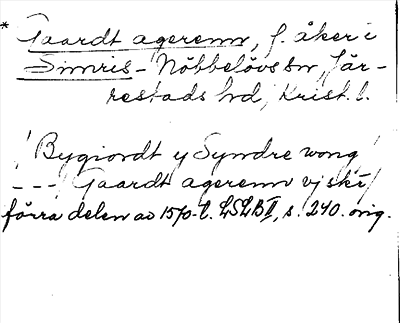 * Gaardt agerenn, f. åker i
Simris-Nöbbelövs sn, Jär-
restads hd, Krist. l.
! Bygiordt y Syndre wong !
--- / Gaardt agerenn vj ski /
förra delen av 1570-t. LSLB II, s. 240. orig.